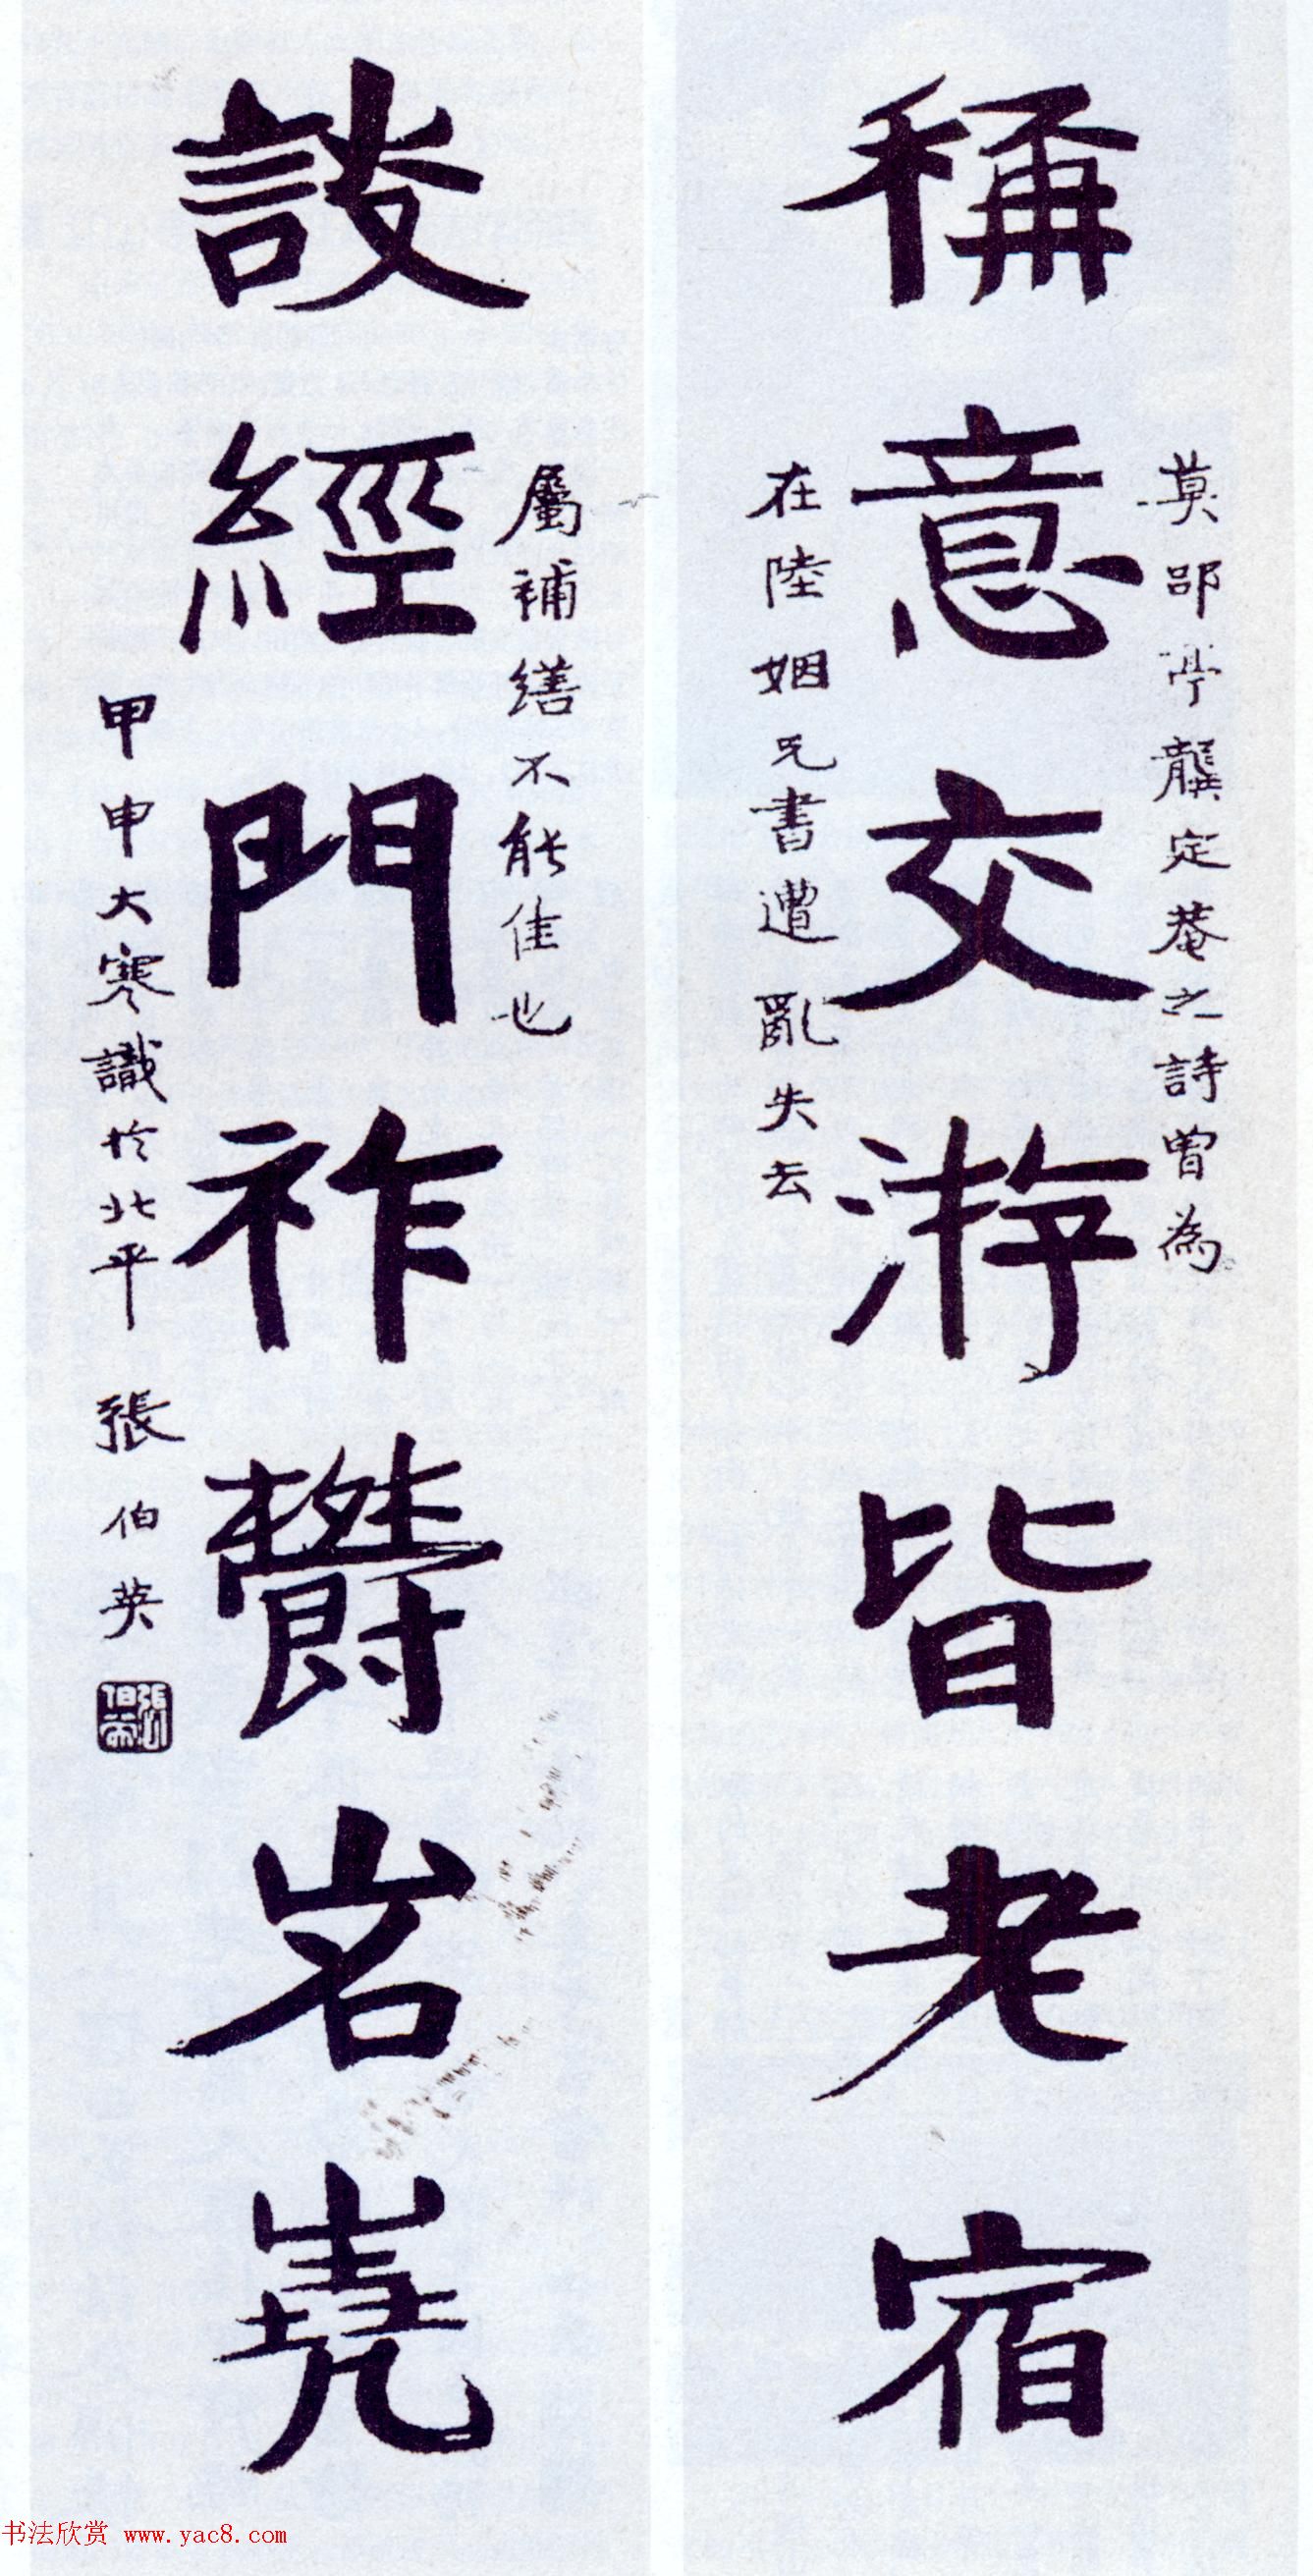 稱意交游皆老宿
莫邵亭龔定菴之詩曾為
在陸姻兄書遭亂失去
設經門祚鬱岧嶤
屬補繕不能佳也
甲申大寒識於北平 張伯英
书法欣赏 www.yac8.com